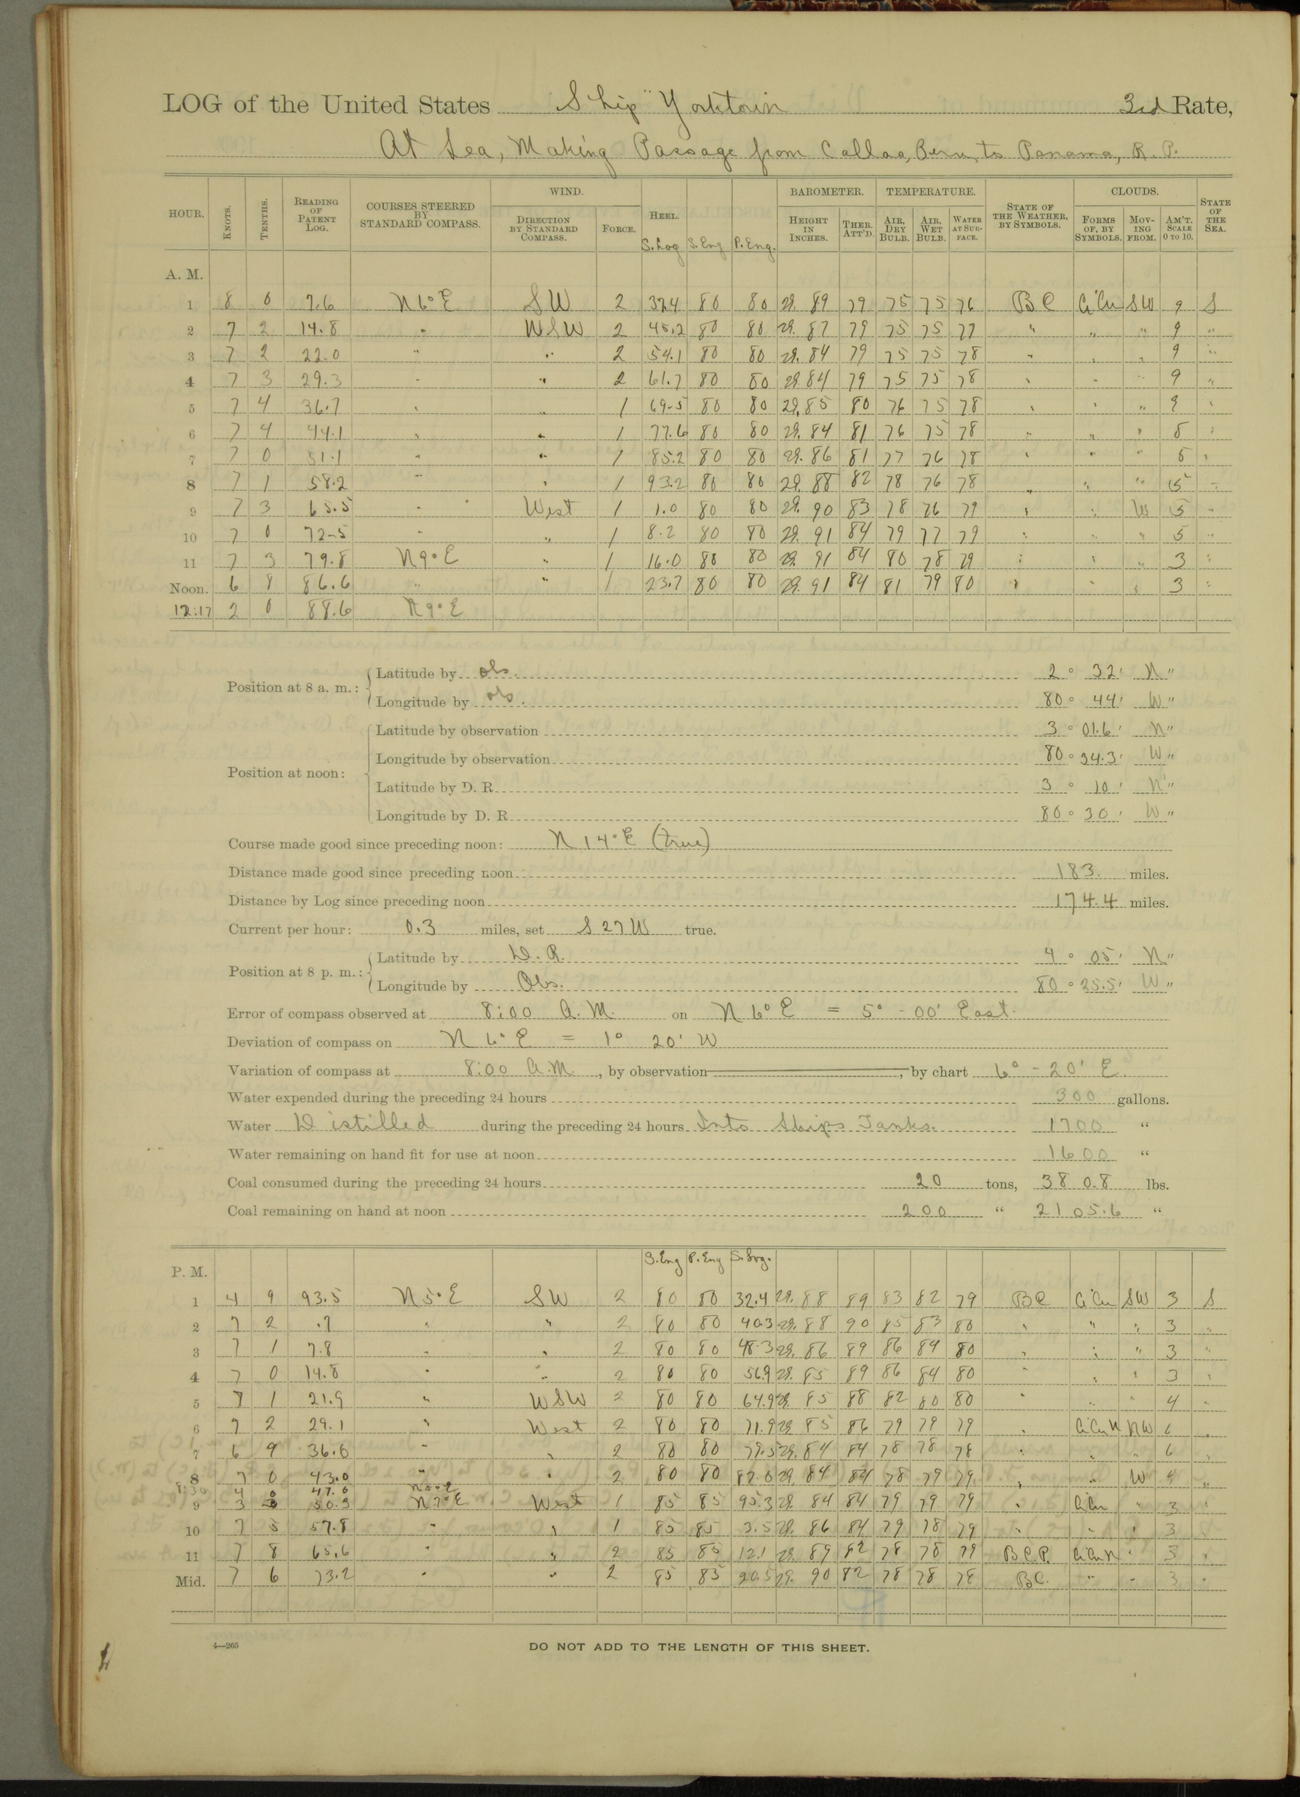 LOG of the United States Ship "Yorktown 3rd Rate,
At Sea, Making Passage from Callao, Peru, to Panama, R. P.
HOUR. KNOTS. TENTHS. READING OF PATENT LOG. COURSES STEERED BY STANDARD COMPASS. WIND. DIRECTION BY STANDARD COMPASS. FORCE. HEEL. S. Log S. Eng P. Eng. BAROMETER. HEIGHT IN INCHES. THER. ATT'D. TEMPERATURE. AIR, DRY BULB. AIR, WET BULB. WATER AT SURFACE. STATE OF THE WEATHER, BY SYMBOLS. CLOUDS. FORMS OF, BY SYMBOLS. MOVING FROM. AM'T. SCALE 0 TO 10. STATE OF THE SEA.
A. M.
1 8 0 7.6 N 6° E SW 2 32.4 80 80 29. 89 79 75 75 76 BC Ci Cu SW 9 S
2 7 2 14.8 " WSW 2 45.2 80 80 29. 87 79 75 75 77 " " " 9 "
3 7 2 22.0 " " 2 54.1 80 80 29. 84 79 75 75 78 " " " 9 "
4 7 3 29.3 " " 2 61.7 80 80 29. 84 79 75 75 78 " " " 9 "
5 7 4 36.7 " " 1 69.5 80 80 29. 85 80 76 75 78 " " " 9 "
6 7 4 44.1 " " 1 77.6 80 80 29. 84 81 76 75 78 " " " 8 "
7 7 0 51.1 " " 1 85.2 80 80 29. 86 81 77 76 78 " " " "
8 7 1 58.2 " " 1 93.2 80 80 29. 88 82 78 76 78 " " " 5 "
9 7 3 65.5 " West 1 1.0 80 80 29. 90 83 78 76 79 " " W 5 "
10 7 0 72.5 " " 1 8.2 80 80 29. 91 84 79 77 79 " " " 5 "
11 7 3 79.8 N 9° E " 1 16.0 80 80 29. 91 84 80 78 79 " " " 3 "
Noon. 6 8 86.6 " " 1 23.7 80 80 29. 91 84 81 79 80 " " " 3 "
12:17 2 0 88.6 N 9° E
Position at 8 a. m.: Latitude by obs. 2 ° 32 ' N "
Longitude by obs. 80 ° 44 ' W "
Position at noon: Latitude by observation 3 ° 01.6 ' N "
Longitude by observation 80 ° 34.3 ' W "
Latitude by D. R. 3 ° 10 ' N "
Longitude by D. R. 80 ° 30 ' W "
Course made good since preceding noon: N 14° E (true)
Distance made good since preceding noon 183. miles.
Distance by Log since preceding noon 174.4 miles.
Current per hour: 0.3 miles, set S 27 W true.
Position at 8 p. m.: Latitude by D. R. 4 ° 05 ' N "
Longitude by Obs. 80 ° 25.5 ' W "
Error of compass observed at 8:00 A. M. on N 6° E = 5° - 00' East.
Deviation of compass on N 6° E = 1° 20' W
Variation of compass at 8:00 A.M , by observation , by chart 6° - 20' E.
Water expended during the preceding 24 hours 300 gallons.
Water Distilled during the preceding 24 hours Into Ships Tanks. 1700 "
Water remaining on hand fit for use at noon 1600 "
Coal consumed during the preceding 24 hours 20 tons, 380.8 lbs.
Coal remaining on hand at noon 200 " 2105.6 "
P. M. S. Eng P. Eng S. Log.
1 4 9 93.5 N 5° E SW 2 80 80 32.4 29. 88 89 83 82 79 BC Ci Cu SW 3 S
2 7 2 .7 " " 2 80 80 40.3 29. 88 90 85 83 80 " " " 3 "
3 7 1 7.8 " " 2 80 80 48.3 29. 86 89 86 84 80 " " " 3 "
4 7 0 14.8 " " 2 80 80 56.9 29. 85 89 86 84 80 " " " 3 "
5 7 1 21.9 " WSW 2 80 80 64.9 29. 85 88 82 80 80 " " " 4 "
6 7 2 29.1 " West 2 80 80 71.9 29. 85 86 79 79 79 " Ci Cu N NW 6 "
7 6 9 36.0 " " 2 80 80 79.5 29. 84 84 78 78 78 " " " 6 "
8 7 0 43.0 " " 2 80 80 87.6 29. 84 84 78 79 79 " " W 4 "
8:30 4 0 47.0
9 3 50.3 N 7° E West 1 85 85 95.3 29. 84 84 79 79 79 " Ci Cu " 3 "
10 7 5 57.8 " " 1 85 85 3.5 29. 86 84 79 78 79 " " " 3 "
11 7 8 65.6 " " 2 85 85 12.1 29. 89 82 78 78 79 B.C.P. Ci Cu N " 3 "
Mid. 7 6 73.2 " " 2 85 85 20.5 29. 90 82 78 78 78 BC. " " 3 "
4—265
DO NOT ADD TO THE LENGTH OF THIS SHEET.